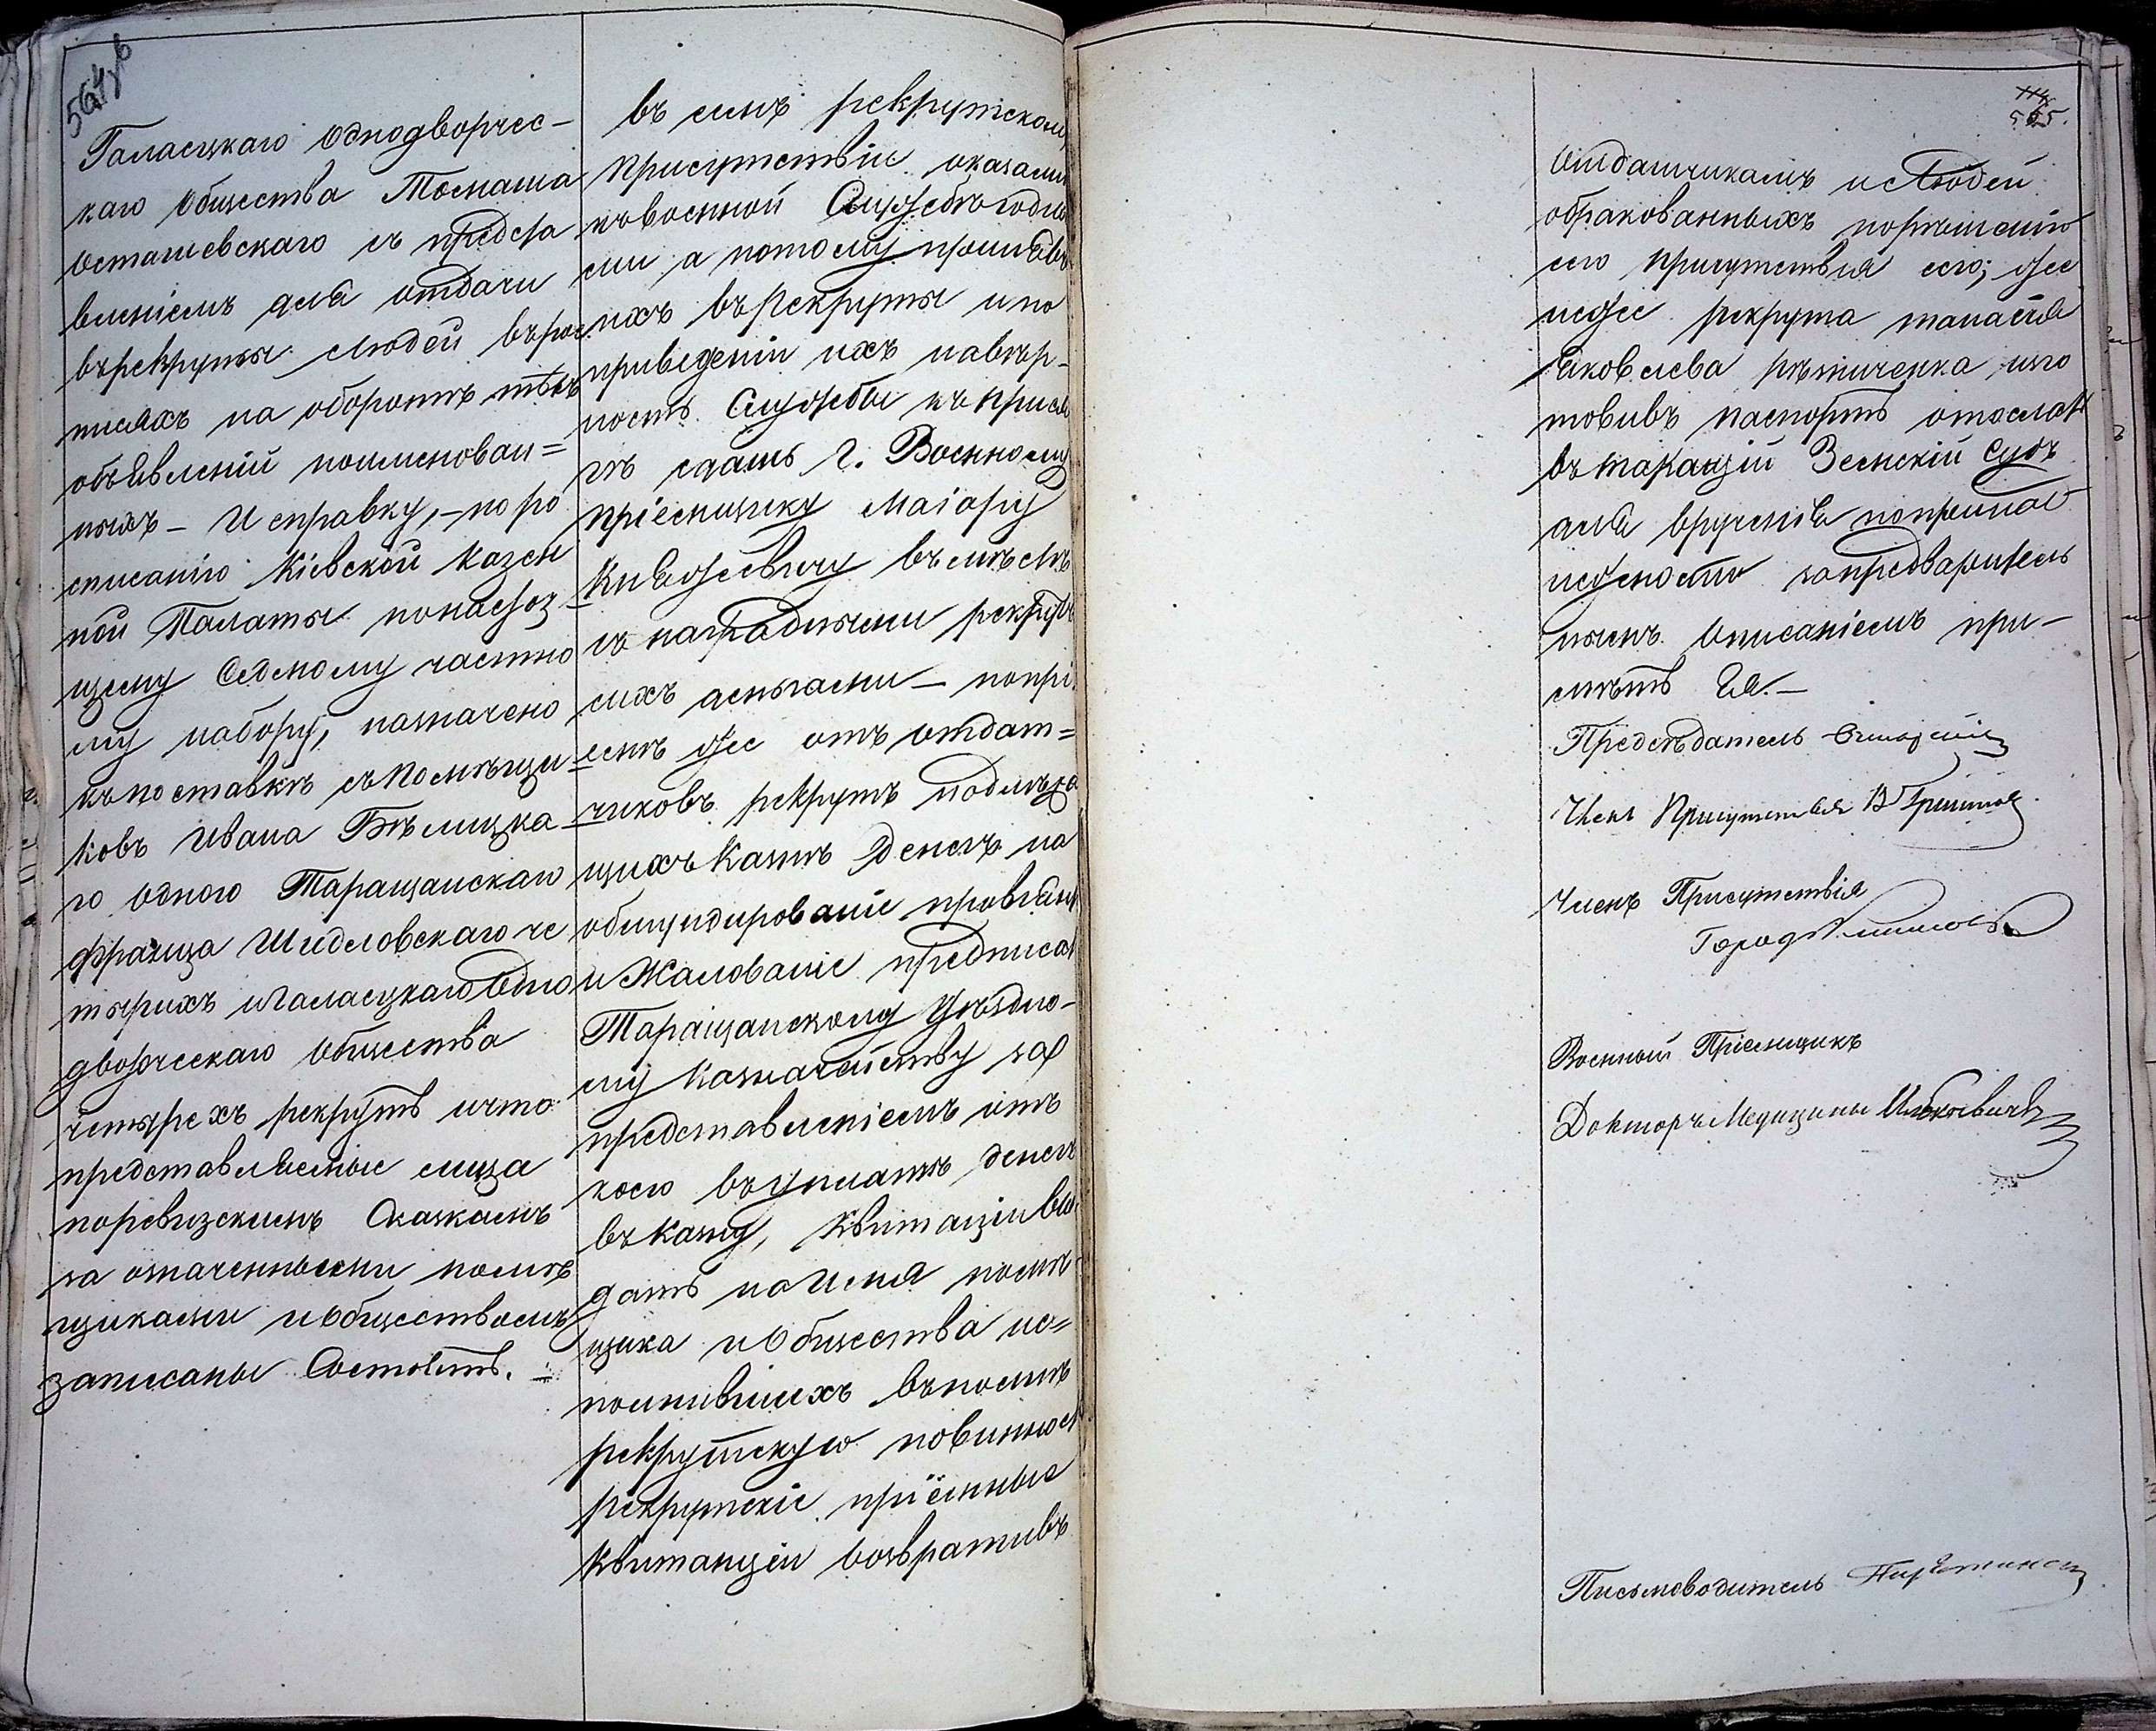 564 об
Галасцкаго Однодворчес-
каго Общества Томаша
Осташевскаго съ предста
вленіемъ для отдачи
въ рекруты людей въ рос
писяхъ на оборотѣ тѣхъ
объявленій поименован=
ныхъ – И справку, – по ро
списанію Кіевской Казен
ной Палаты по настоя
щему Седмому частно
му набору, назначено
къ поставкѣ съ Помѣщи
ковъ Ивана Бѣлицка
го Одного Таращанскаго
Франца Шидловскаго че
тырихъ и Галасцкаго Одно
дворческаго Общества
четырехъ рекрутъ и что
представляемые лица
по ревизскимъ Сказкамъ
за означенными помѣ
щиками и Обществомъ
записаны Состоятъ.
въ семъ рекрутскомъ
присутствіи оказались
къ военной Службѣ годны
ми а потому принявъ
ихъ въ рекруты и по
приведеніи ихъ на вѣр-
ность Службы къ прися
гѣ сдать Г. Военному
Пріемщику Маіору
Княжевичу вмѣстѣ
съ натрадными рекрут
скихъ деньгами – по прі
емѣ же отъ отдат=
чиковъ рекрутъ подлежа
щихъ Казнѣ денегъ на
обмундированіе провіянтъ
и Жалованіе предписать
Таращанскому Уѣздно-
му Казначейству за
представленіемъ отъ
коего въ уплатѣ денегъ
въ Казну, Квитанціи вы
дать на Имя помѣ
щика и Общества ис=
полнившихъ въ помѣтѣ
рекрутскую повинность
рекрутскіе пріемные
Квитанціи возвративъ
565.
Отдатчикамъ и Людей
обракованныхъ по рѣшенію
сего присутствія его; же
неже рекрута
Яковлева изго
товивъ паспортъ отослать
въ Таращ. Земскій Судъ
для врученія по принад
лежности за предваритель
нымъ Описаніемъ при-
мѣтъ Ея. –
Предсѣдатель
Членъ Присутствія
Членъ Присутствія
Военный Пріемщикъ
Докторъ Медицины
Письмоводитель